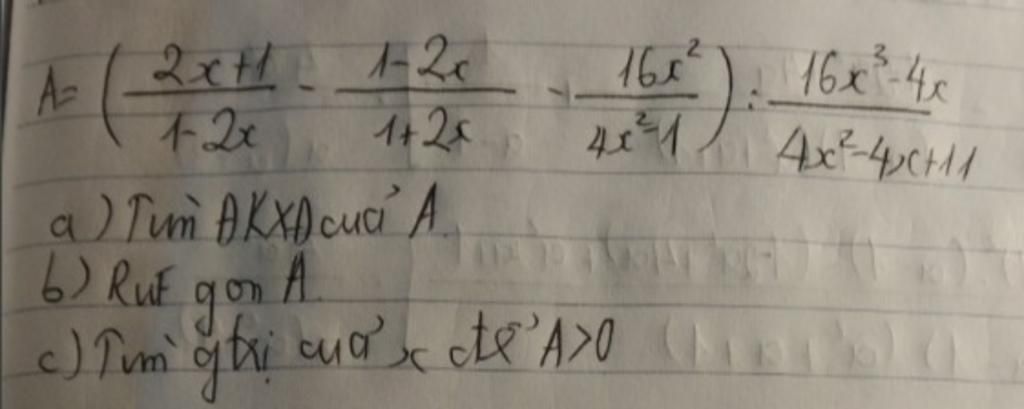 A= ( (2x+1)/(1-2x) - (1-2x)/(1+2x) - (16x²)/(4x²-1) ) : (16x³-4x)/(4x²-4x+11)
a) Tìm ĐKXĐ của A.
b) Rut gọn A.
c) Tìm gtrị của x để A>0